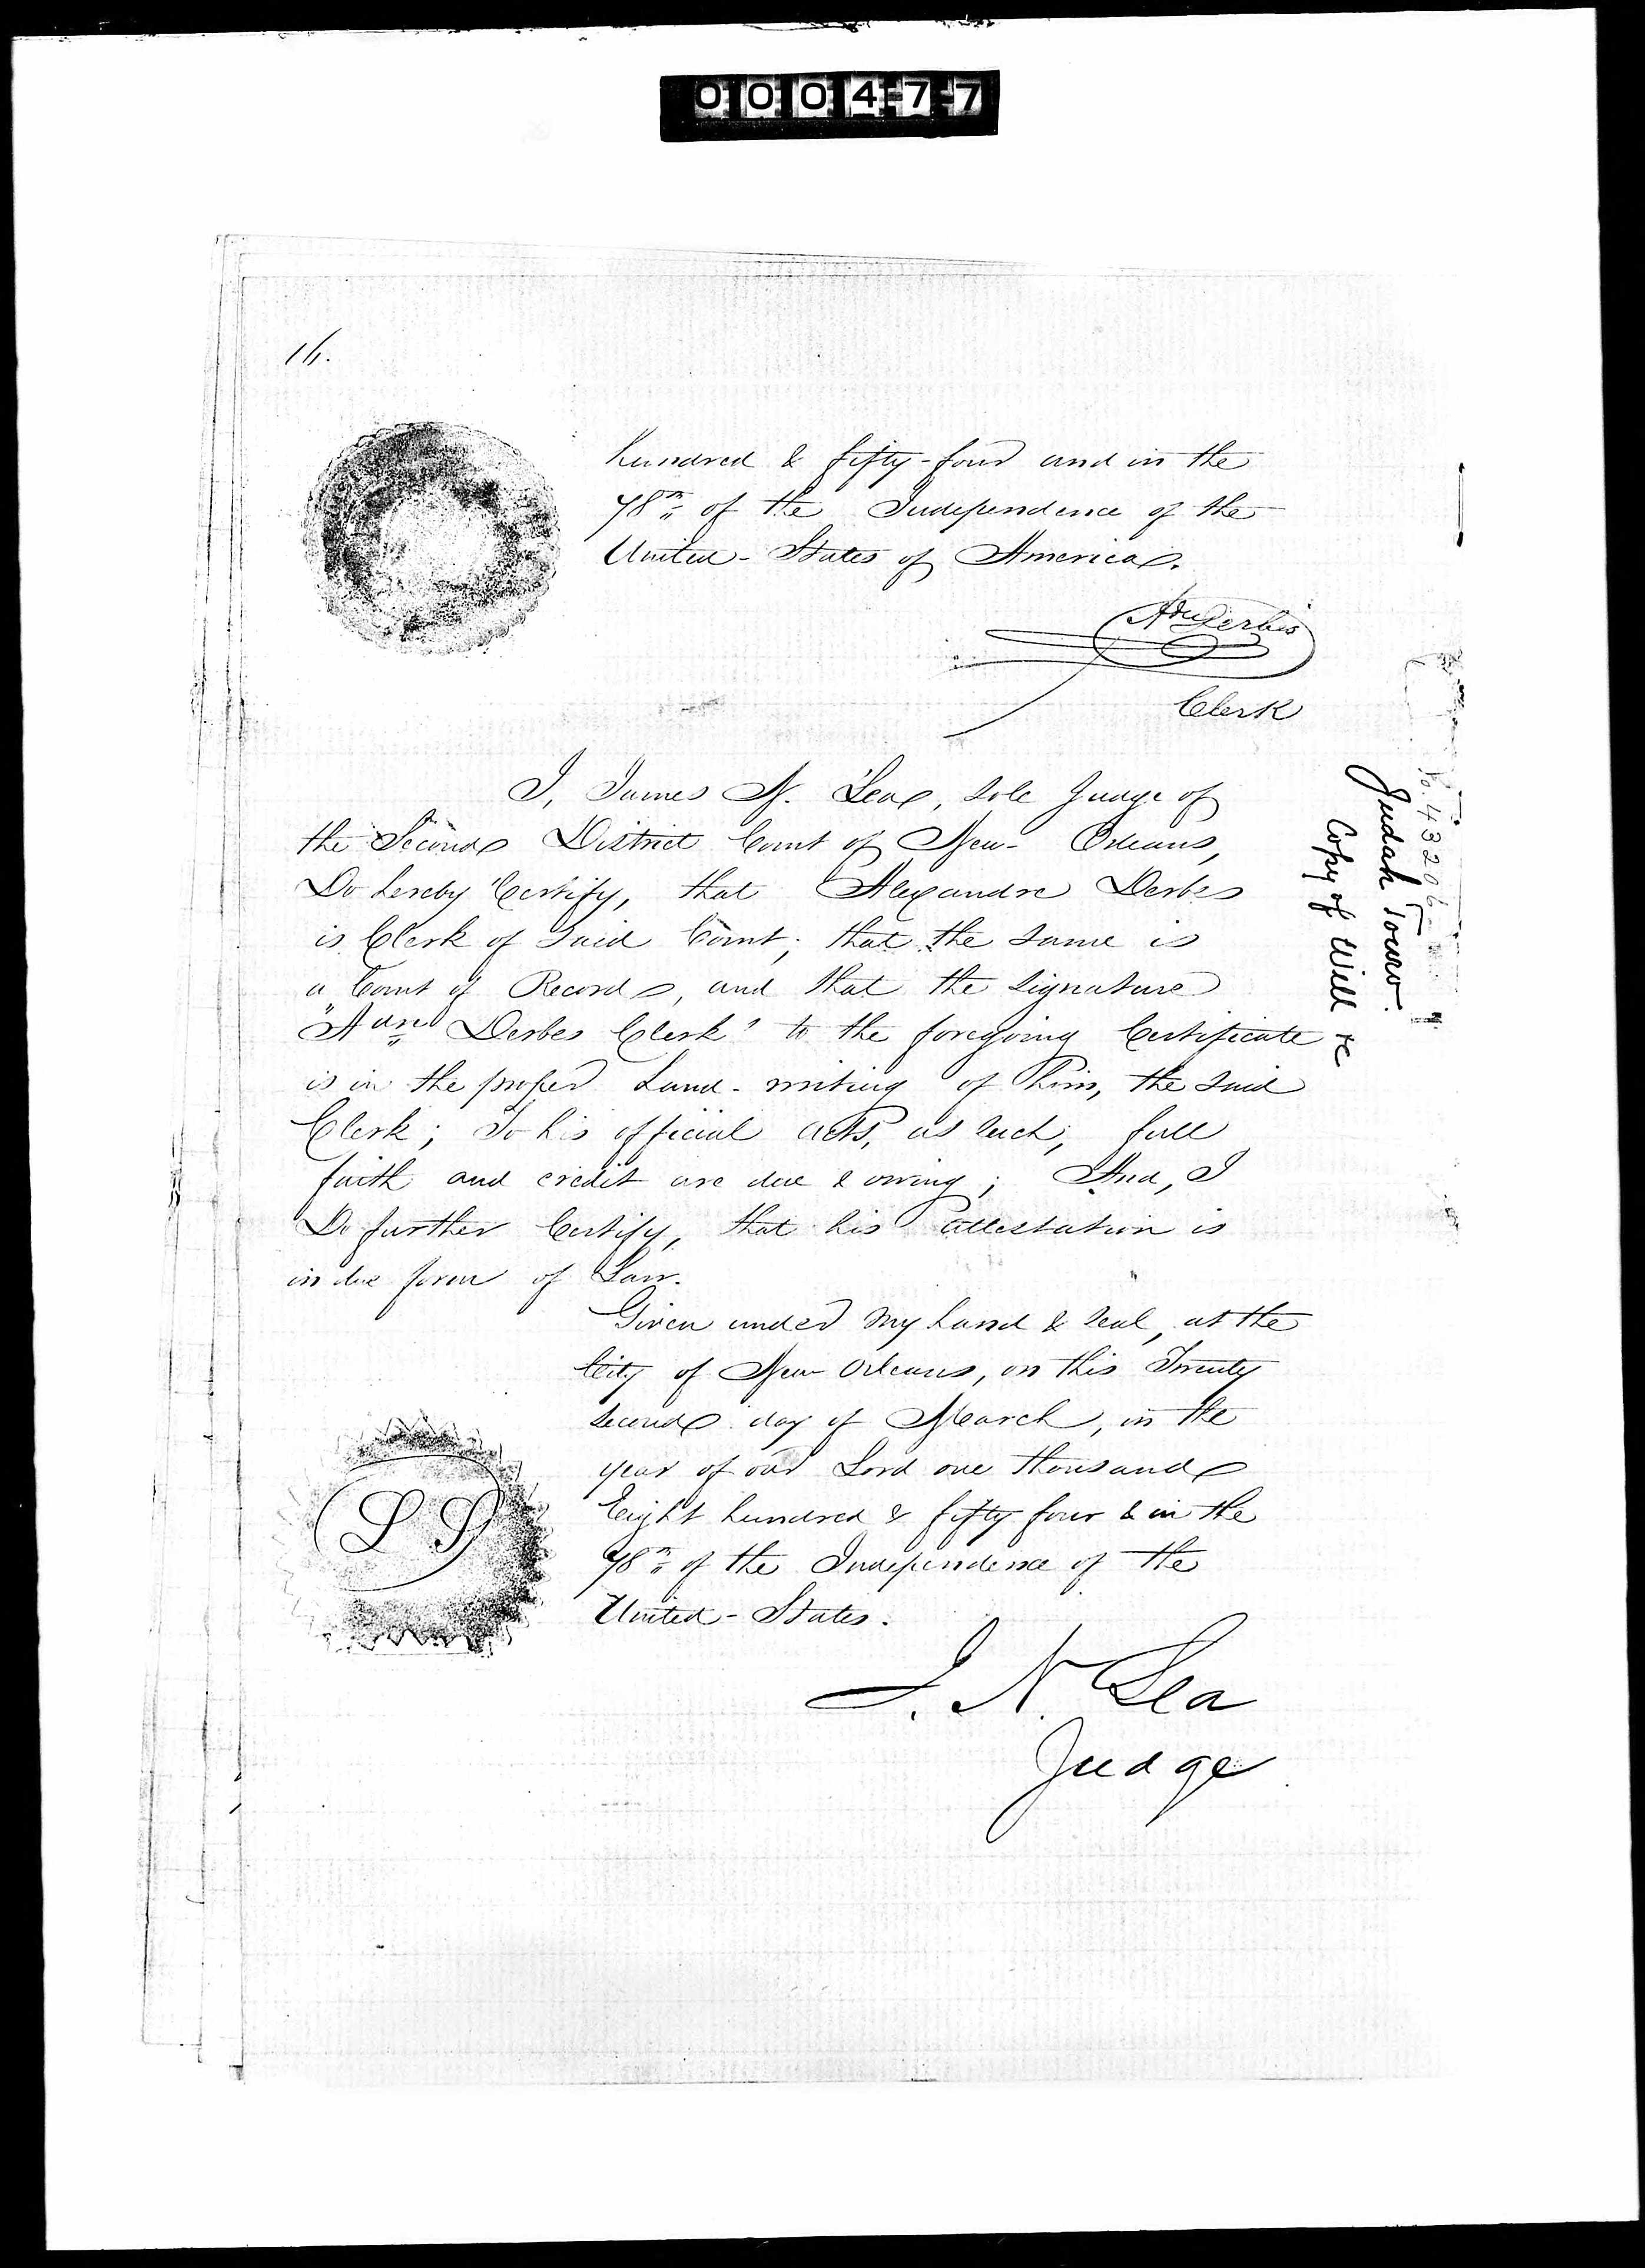 000477
16.
hundred & fifty-four and in the
78th of the Independence of the
United-States of America.
Adre Derbes
Clerk
I, James N. Lea, sole Judge of
the Second District Court of New-Orleans,
Do hereby Certify, that Alexandre Derbes
is Clerk of said Court; that the same is
a Court of Record, and that the signature
"Adre Derbes Clerk" to the foregoing Certificate
is in the proper hand-writing of him, the said
Clerk; To his official acts, as such, full
faith and credit are due & owing; And, I
Do further Certify, that his attestation is
in due form of Law.
Given under my hand & seal, at the
City of New Orleans, on this Twenty
second day of March, in the
year of our Lord one thousand
Eight hundred & fifty four & in the
78th of the Independence of the
United-States.
L S
J. N. Lea
Judge
Judah Touro.
Copy of Will &c